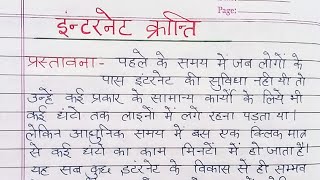 Page:
इंन्टरनेट क्रान्ति
प्रस्तावना:- पहले के समय में जब लोगों के
पास इंटरनेट की सुविधा नही थी तो
उन्हें कई प्रकार के सामान्य कार्यो के लिये भी
कई घंटो तक लाइनों में लगे रहना पड़ता था।
लेकिन आधुनिक समय में बस एक क्लिक मात्र
से कई घंटो का काम मिनटों में हो जाता है।
यह सब कुछ इंटरनेट के विकास से ही सम्भव